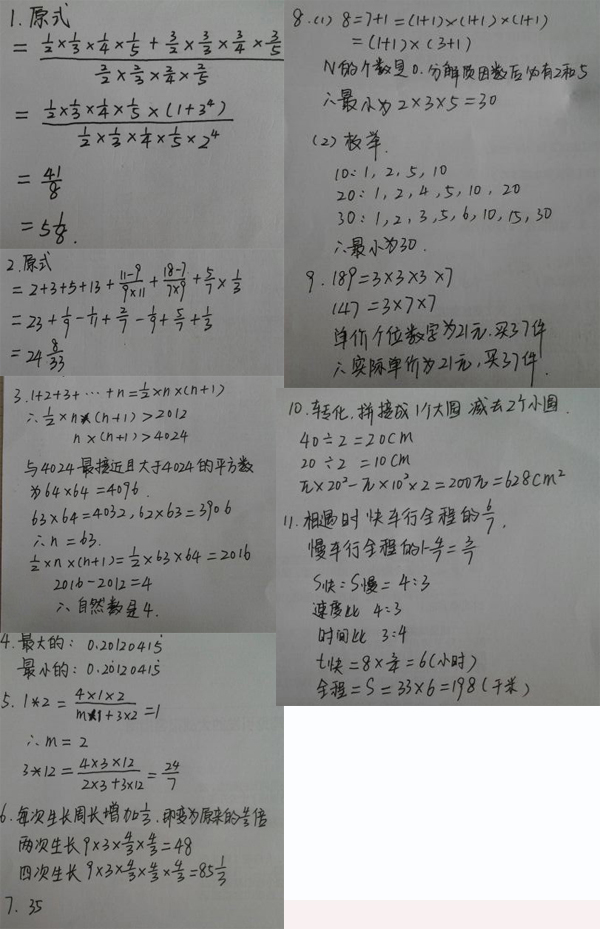 1. 原式
= (1/2×1/3×1/4×1/5 + 3/2×3/3×3/4×3/5) / (2/2×2/3×2/4×2/5)
= (1/2×1/3×1/4×1/5×(1+3⁴)) / (1/2×1/3×1/4×1/5×2⁴)
= 41/8
= 5 1/8.
2. 原式
= 2+3+5+13+ (11-9)/(9×11) + (18-7)/(7×9) + 5/7 × 1/3
= 23 + 1/9 - 1/11 + 2/7 - 1/9 + 5/7 + 1/3
= 24 8/33
3. 1+2+3+…+n=1/2×n×(n+1)
∴ 1/2×n×(n+1)>2012
n×(n+1)>4024
与4024最接近且大于4024的平方数
为64×64=4096.
63×64=4032, 62×63=3906
∴ n=63.
1/2×n×(n+1)=1/2×63×64=2016
2016-2012=4
∴ 自然数是4.
4. 最大的: 0.20120415
最小的: 0.20120415
5. 1*2 = (4×1×2)/(m×1+3×2) = 1
∴ m=2
3*12 = (4×3×12)/(2×3+3×12) = 24/7
6. 每次生长周长增加1/3, 即变为原来的4/3倍
两次生长 9×3×4/3×4/3=48
四次生长 9×3×4/3×4/3×4/3=85 1/3
7. 35
8. (1) 8=7+1=(1+1)×(1+1)×(1+1)
=(1+1)×(3+1)
N的个数是0. 分解质因数后必有2和5
∴ 最小为2×3×5=30
(2) 枚举.
10: 1, 2, 5, 10
20: 1, 2, 4, 5, 10, 20
30: 1, 2, 3, 5, 6, 10, 15, 30
∴ 最小为30.
9. 189=3×3×3×7
147=3×7×7
单价个位数字为21元, 买37件
∴ 实际单价为21元, 买37件.
10. 转化, 拼接成1个大圆 减去2个小圆.
40÷2=20cm
20÷2=10cm
π×20²-π×10²×2=200π=628cm²
11. 相遇时 快车行全程的4/7,
慢车行全程的1-4/7=3/7
S快:S慢=4:3
速度比 4:3
时间比 3:4
t快=8×3/4=6(小时)
全程=S=33×6=198(千米)